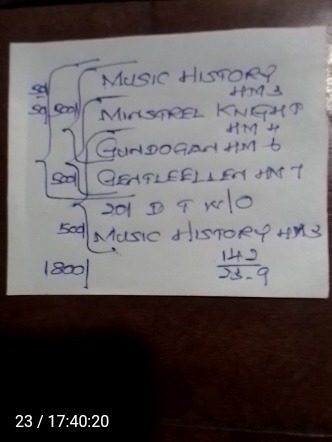 MUSIC HISTORY
HM 3
50
50
500/
MINSTREL KNIGHT
HM 4
GUNDOGAN HM 6
500/ GENTLEELLEN HM 7
201 D T W/O
500/ MUSIC HISTORY HM3
1800/
142
23-9
23 / 17:40:20